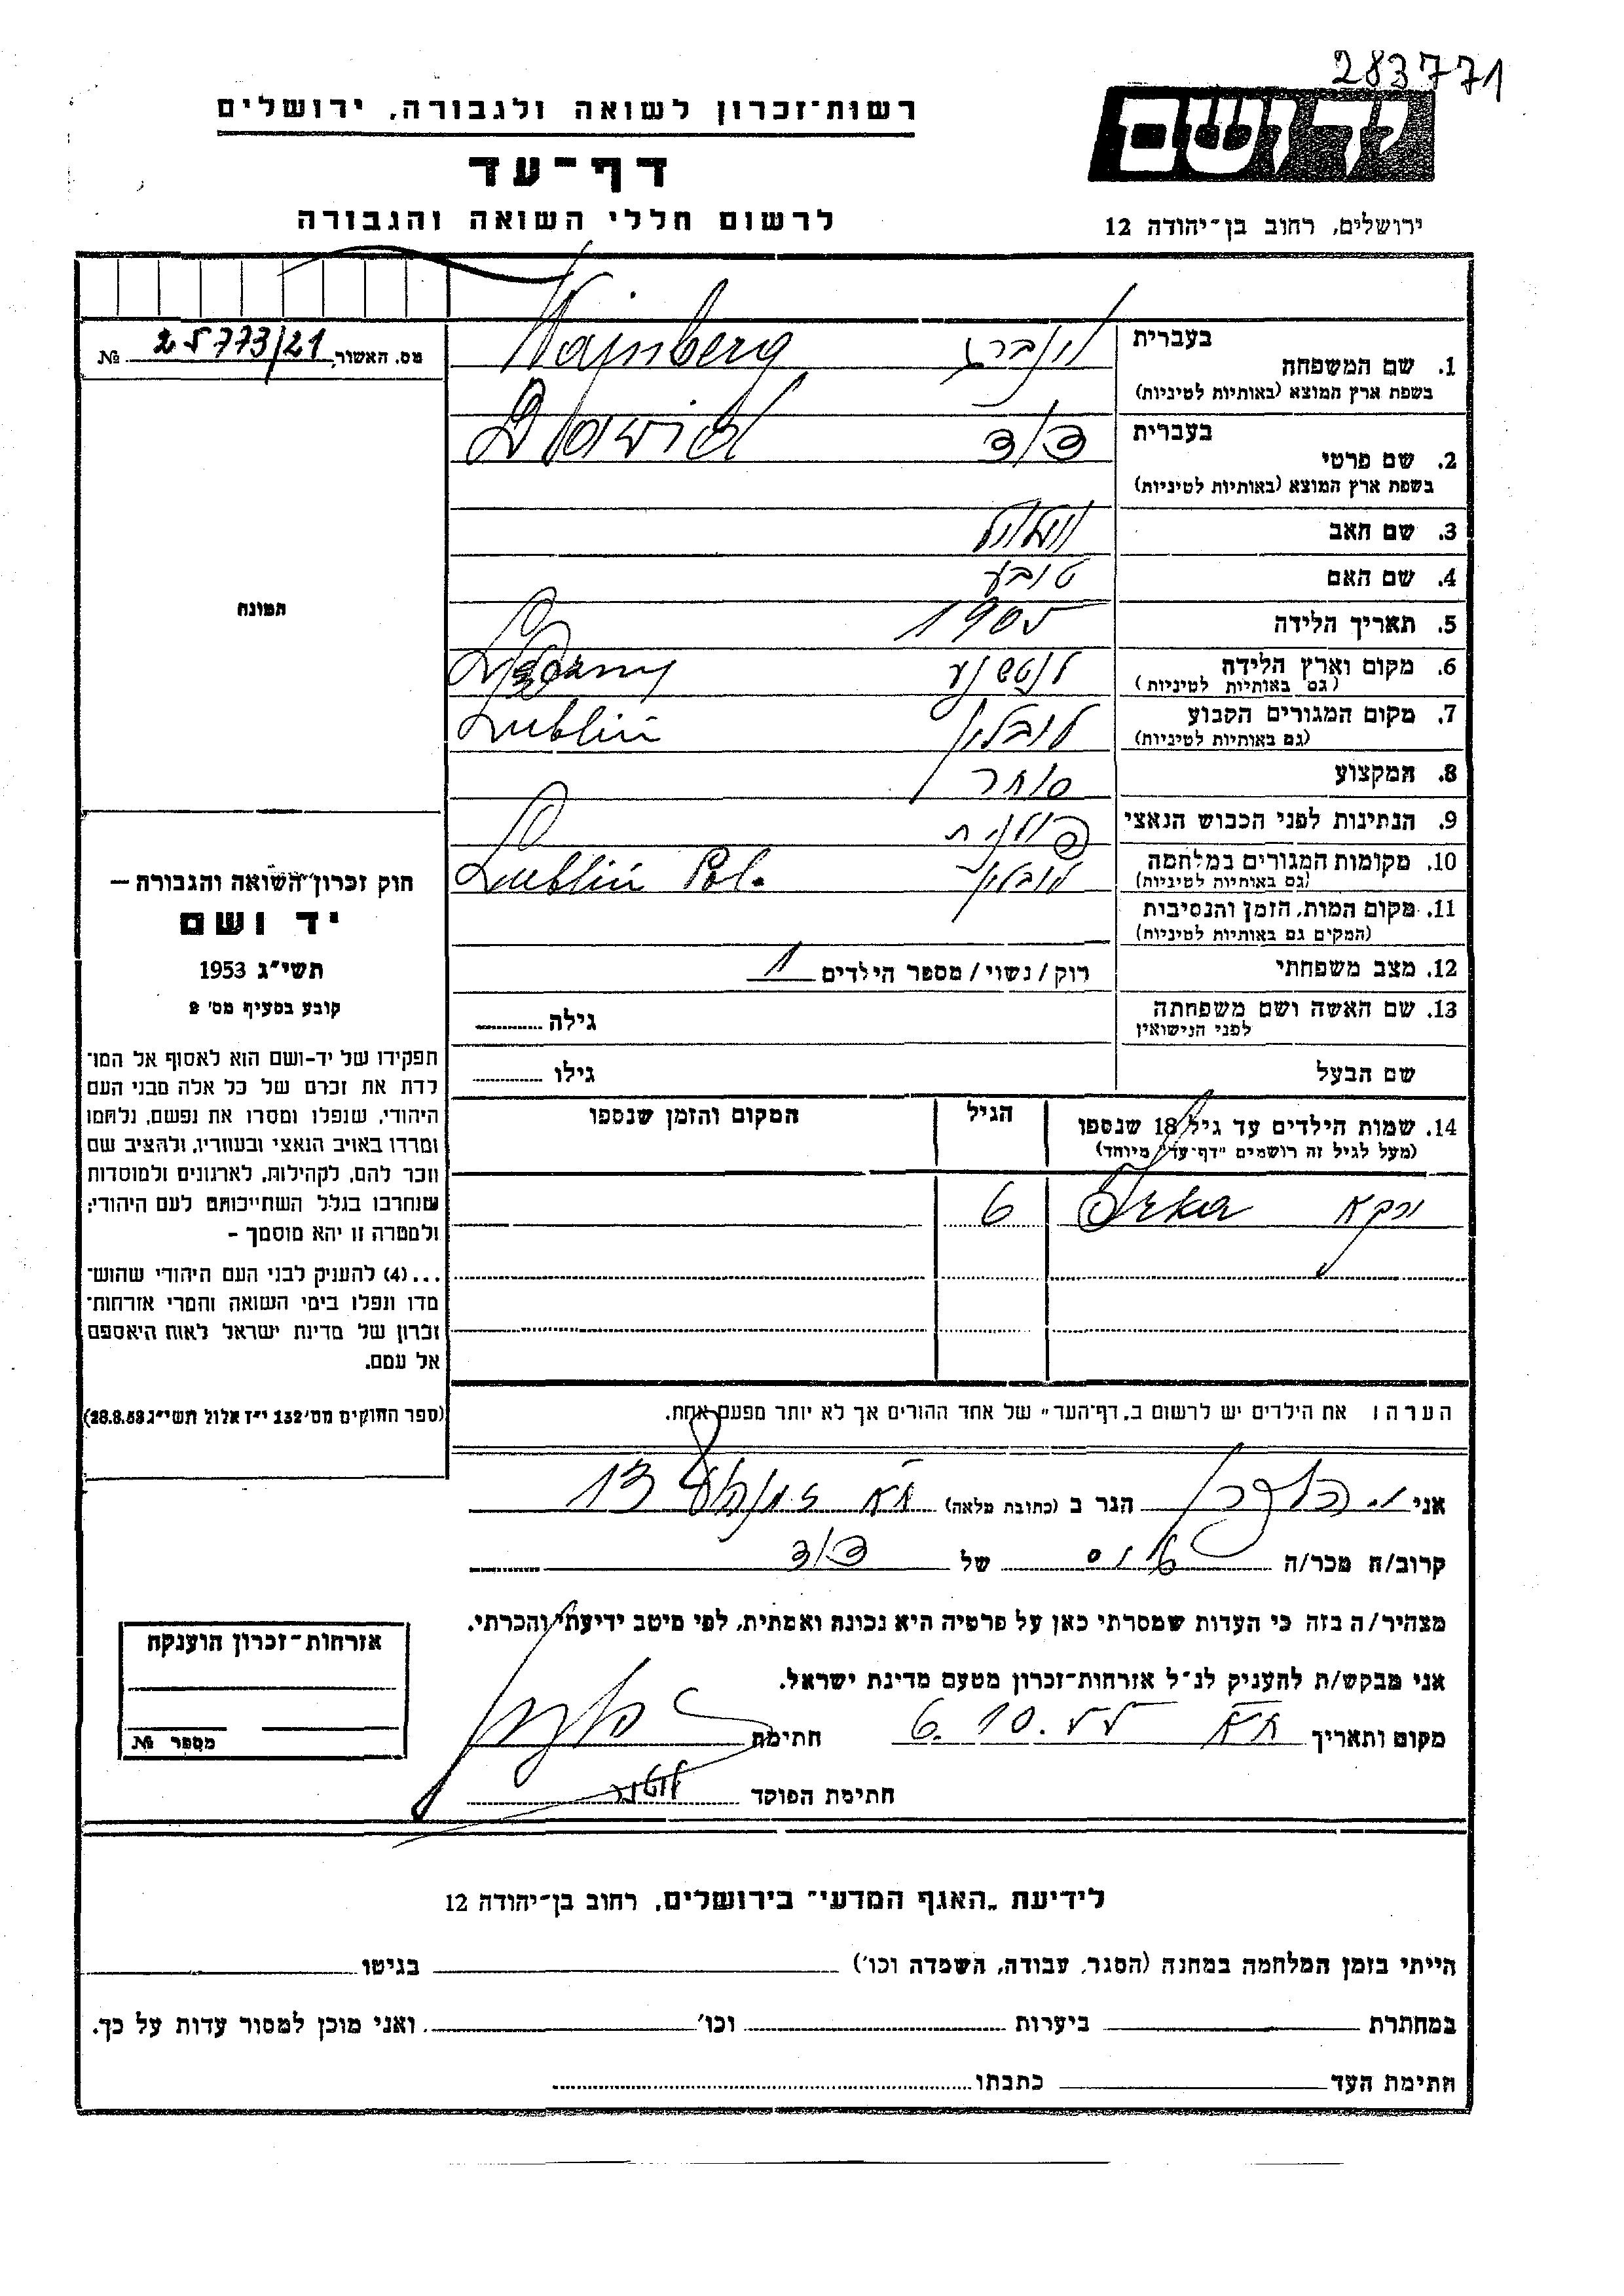 283771
רשות־זכרון לשואה ולגבורה, ירושלים
דף־עד
לרשום חללי השואה והגבורה
ידושם
ירושלים, רחוב בן־יהודה 12
מס. האשור 25773/21 №
בעברית
1. שם המשפחה
בשפת ארץ המוצא (באותיות לטיניות)
וינברג Wajnberg
בעברית
2. שם פרטי
בשפת ארץ המוצא (באותיות לטיניות)
דוד Dawid
3. שם האב
4. שם האם טובע
5. תאריך הלידה 1905
6. מקום וארץ הלידה
(גם באותיות לטיניות)
7. מקום המגורים הקבוע לובלין Lublin
(גם באותיות לטיניות)
8. המקצוע סוחר
9. הנתינות לפני הכבוש הנאצי פולנית
10. מקומות המגורים במלחמה לובלין Lublin Pol.
(גם באותיות לטיניות)
11. מקום המות, הזמן והנסיבות
(המקום גם באותיות לטיניות)
12. מצב משפחתי רוק/נשוי/מספר הילדים 1
13. שם האשה ושם משפחתה
לפני הנישואין גילה
שם הבעל גילו
14. שמות הילדים עד גיל 18 שנספו
(מעל לגיל זה רושמים "דף־עד" מיוחד)
הגיל
המקום והזמן שנספו
ירקא Irka 6
הערה: את הילדים יש לרשום ב„דף־העד" של אחד ההורים אך לא יותר מפעם אחת.
התמונה
חוק זכרון השואה והגבורה —
יד ושם
תשי"ג 1953
קובע בסעיף מס' 2
תפקידו של יד-ושם הוא לאסוף אל המו־
לדת את זכרם של כל אלה מבני העם
היהודי, שנפלו ומסרו את נפשם, נלחמו
ומרדו באויב הנאצי ובעוזריו, ולהציב שם
וזכר להם, לקהילות, לארגונים ולמוסדות
שנחרבו בגלל השתייכותם לעם היהודי;
ולמטרה זו יהא מוסמך -
...(4) להעניק לבני העם היהודי שהוש־
מדו ונפלו בימי השואה והמרי אזרחות־
זכרון של מדינת ישראל לאות היאספם
אל עמם.
(ספר החוקים מס' 132 י"ז אלול תשי"ג 28.8.53)
אני הגר ב (כתובת מלאה) תא 13
קרוב/ה מכר/ה של דוד
מצהיר/ה בזה כי העדות שמסרתי כאן על פרטיה היא נכונה ואמתית, לפי מיטב ידיעתי והכרתי.
אני מבקש/ת להעניק לנ"ל אזרחות־זכרון מטעם מדינת ישראל.
מקום ותאריך תא 6.10.55 חתימה
חתימת הפוקד
אזרחות־זכרון הוענקה
מספר №
לידיעת „האגף המדעי" בירושלים, רחוב בן־יהודה 12
הייתי בזמן המלחמה במחנה (הסגר, עבודה, השמדה וכו') בגיטו
במחתרת ביערות וכו' ואני מוכן למסור עדות על כך.
חתימת העד כתבתו